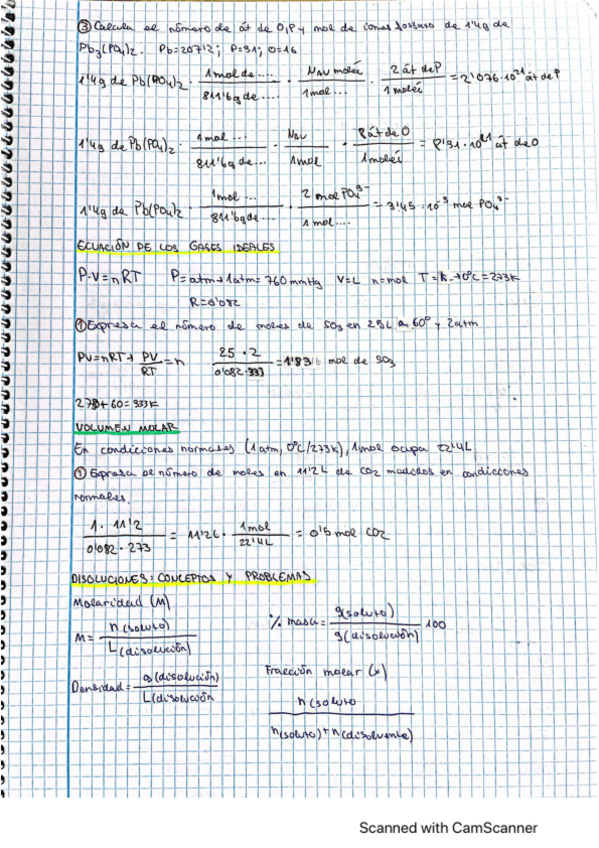 ③ Calcula el número de át de O, P y mol de iones fosfuro de 1'4g de
Pb3(PO4)2. Pb=207'2; P=31; O=16
1'4g de Pb(PO4)2 · 1 mol de .... / 811'6g de .... · NAV moléc / 1mol ... · 2 át de P / 1 moléc = 2'076·10^21 át de P
1'4g de Pb(PO4)2 · 1 mol ... / 811'6g de ... · NAV / 1mol · 8 át de O / 1moléc = 8'31·10^21 át de O
1'4g de Pb(PO4)2 · 1mol ... / 811'6g de ... · 2 mol PO4^3- / 1 mol .... = 3'45·10^-3 mol PO4^3-
ECUACIÓN DE LOS GASES IDEALES
P·V=nRT P=atm→1atm=760mmHg V=L n=mol T=K→0ºC=273K
R=0'082
① Expresa el número de moles de SO3 en 25L a 60º y 2atm
PV=nRT→ PV/RT = n 25·2 / 0'082·333 = 1'83 mol de SO3
273+60=333K
VOLUMEN MOLAR
En condiciones normales (1atm, 0ºC/273K), 1mol ocupa 22'4L
① Expresa el número de moles en 11'2L de CO2 medidos en condiciones
normales.
1·11'2 / 0'082·273 = 11'2L · 1mol / 22'4L = 0'5 mol CO2
DISOLUCIONES: CONCEPTOS Y PROBLEMAS
Molaridad (M)
M= n(soluto) / L(disolución)
% masa= g(soluto) / g(disolución) · 100
Densidad= g(disolución) / L(disolución
Fracción molar (x)
n(soluto / n(soluto)+n(disolvente)
Scanned with CamScanner